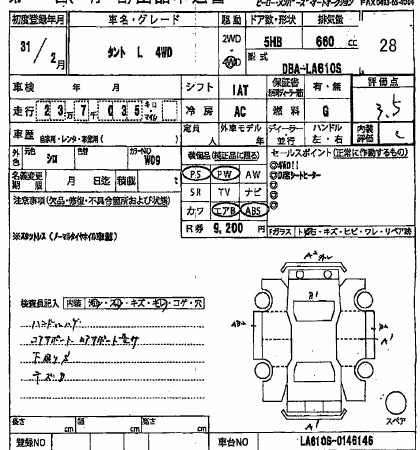 初度登録年月 車名・グレード 駆動 ドア数・形状 排気量
31 / 2月 タント L 4WD 2WD 4WD 5HB 660 cc 28
型式 DBA-LA610S
車検 年 月 シフト IAT 保証書 有・無 評価点
走行 23万7千035キロ・マイル 冷房 AC 燃料 G 3.5
車歴 自家用・レンタ・事業用( ) 定員 人 外車モデル 年 ディーラー 並行 ハンドル 左・右 内装評価 C
外色 元色 シロ 色替 カラーNO W09 装備品(純正品に限る) セールスポイント(正常に作動するもの)
名義変更期限 月 日迄 積載 t PS PW AW ◎4WD!!
SR TV ナビ
注意事項(欠品・修復・不具合箇所および状態) カワ エアB ABS
R券 9,200 円
※スタットレス(ノーマルタイヤホイール積載) Fガラス トビ石・キズ・ヒビ・ワレ・リペア跡
A2
B1
検査員記入 内装 汚レ・スレ・キズ・モレ・コゲ・穴
AB2 B2 A1
ハンドルハゲ
下廻りサビ
A1 スペア
長さ cm 幅 cm 高さ cm
登録NO 車台NO LA610S-0146146